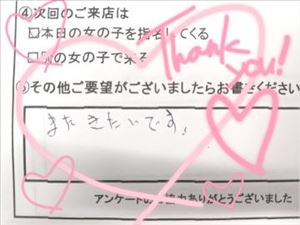 ④次回のご来店は
□本日の女の子を指名してくる
□別の女の子で来る
Thank you!
⑤その他ご要望がございましたらお書きください
またきたいです。
アンケートのご協力ありがとうございました